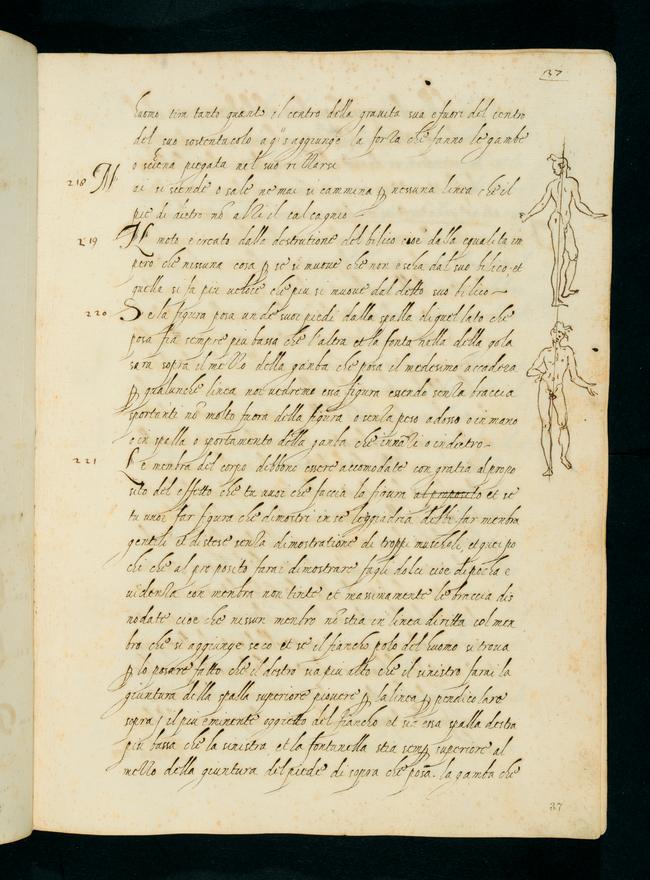 37
huomo tira tanto quanto il centro della gravita sua e fuori del centro
del suo sostentacolo a q.ª s'aggiunge la forza che fanno le gambe
o schena piegata nel suo rizzarsi
218 Mai si scende o sale ne mai si cammina p nessuna linea che il
pie di dietro nō alzi il calcagnio
219 Il moto e creato dalla destrutione del bilico cioe dalla equalita im
pero che nissuna cosa p se si muove che non escha dal suo bilico et
quella si fa piu veloce che piu si muove dal detto suo bilico
220 Se la figura posa un de suoi piedi dalla spalla di quel lato che
posa fia sempre piu bassa che l'altra et la fontanella della gola
sara sopra il mezzo della gamba che posa il medesimo accadera
p qualunche linea noi vedremo essa figura essendo senza braccia
sportanti nō molto fuora della figura o senza peso adosso o in mano
o in spalla o sportamento della gamba che innāzi o indietro
221 Le membra del corpo debbono essere accomodate con gratia al propo
sito del effetto che tu vuoi che faccia la figura al proposito et se
tu vuoi far figura che dimostri in se leggiadria debbi far membra
gentili et distese senza dimostratione di troppi muscholi, et quei po
chi che al pre posito farai dimostrare fagli dolci cioe di pocha e
videnza con membra non tinte et massimamente le braccia dis
nodate cioe che nissun membro nō stia in linea diritta col mem
bro che si aggiunge seco et se il fiancho polo del huomo si trova
p lo posare fatto che il destro sia piu alto che il sinistro farai la
giuntura della spalla superiore piovere p la linea ppendicolare
sopra il piu eminente oggietto del fiancho et sia essa spalla destra
piu bassa che la sinistra et la fontanella stia semp superiore al
mezzo della giuntura del piede di sopra che posa. la gamba che
37